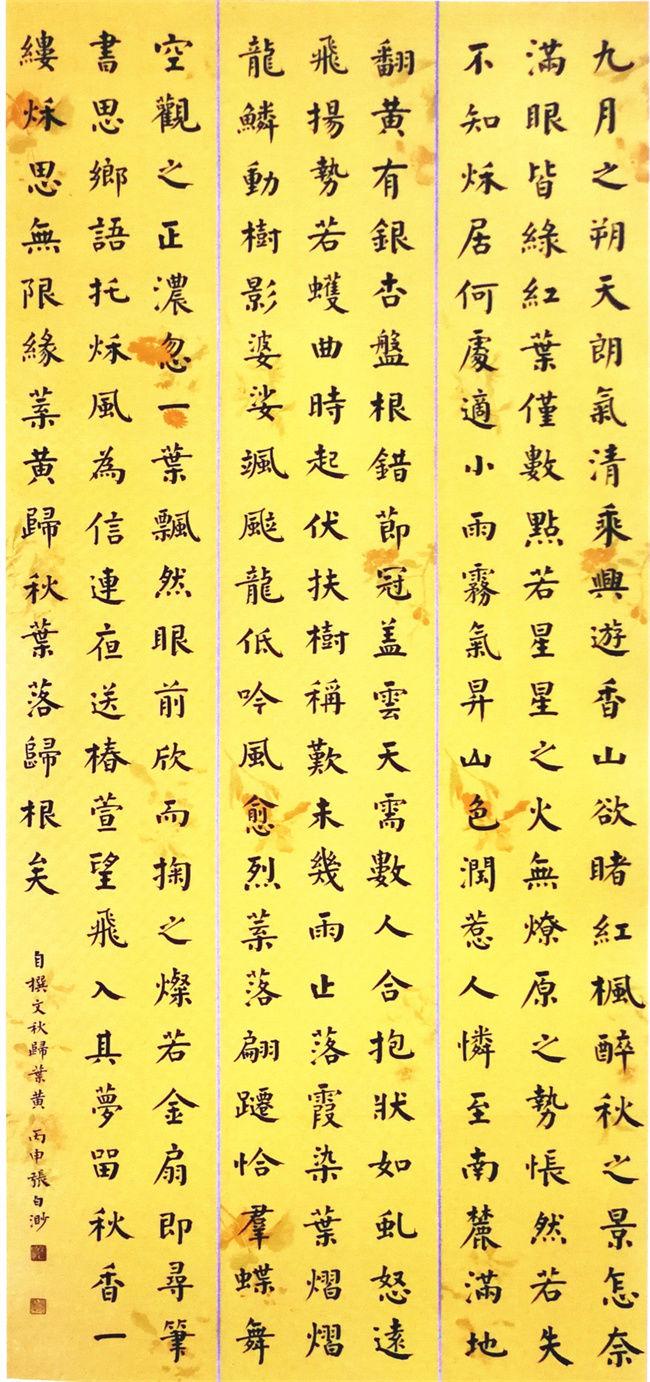 九月之朔天朗氣清乘興遊香山欲睹紅楓醉秋之景怎奈
滿眼皆綠紅葉僅數點若星星之火無燎原之勢悵然若失
不知秌居何處適小雨霧氣昇山色潤惹人憐至南麓滿地
翻黃有銀杏盤根錯節冠盖雲天需數人合抱狀如虬怒遠
飛揚勢若蠖曲時起伏扶樹稱歎未幾雨止落霞染葉熠熠
龍鱗動樹影婆娑颯颯龍低吟風愈烈葉落翩躚恰羣蝶舞
空觀之正濃忽一葉飄然眼前欣而掬之燦若金扇即尋筆
書思鄉語托秌風為信連夜送椿萱望飛入其夢留秋香一
縷秌思無限緣葉黃歸秋葉落歸根矣
自撰文秋歸葉黃 丙申張白渺